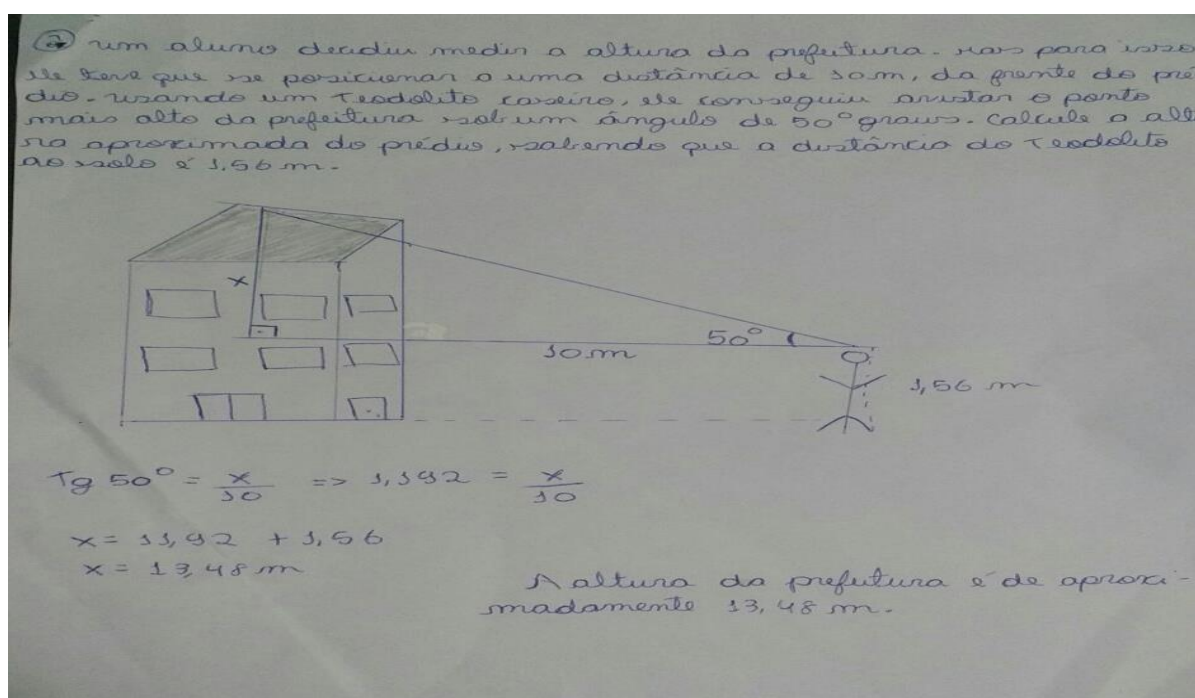 ② um aluno decidiu medir a altura da prefeitura. Mas para isso
ele teve que se posicionar a uma distância de 10m, da frente do pré
dio. Usando um Teodolito caseiro, ele conseguiu avistar o ponto
mais alto da prefeitura sob um ângulo de 50° graus. Calcule a altu
ra aproximada do prédio, sabendo que a distância do Teodolito
ao solo é 1,56 m.
x
50°
10 m
1,56 m
Tg 50° = x/10 => 1,192 = x/10
x = 11,92 + 1,56
x = 13,48 m
A altura da prefeitura é de aproxi-
madamente 13,48 m.